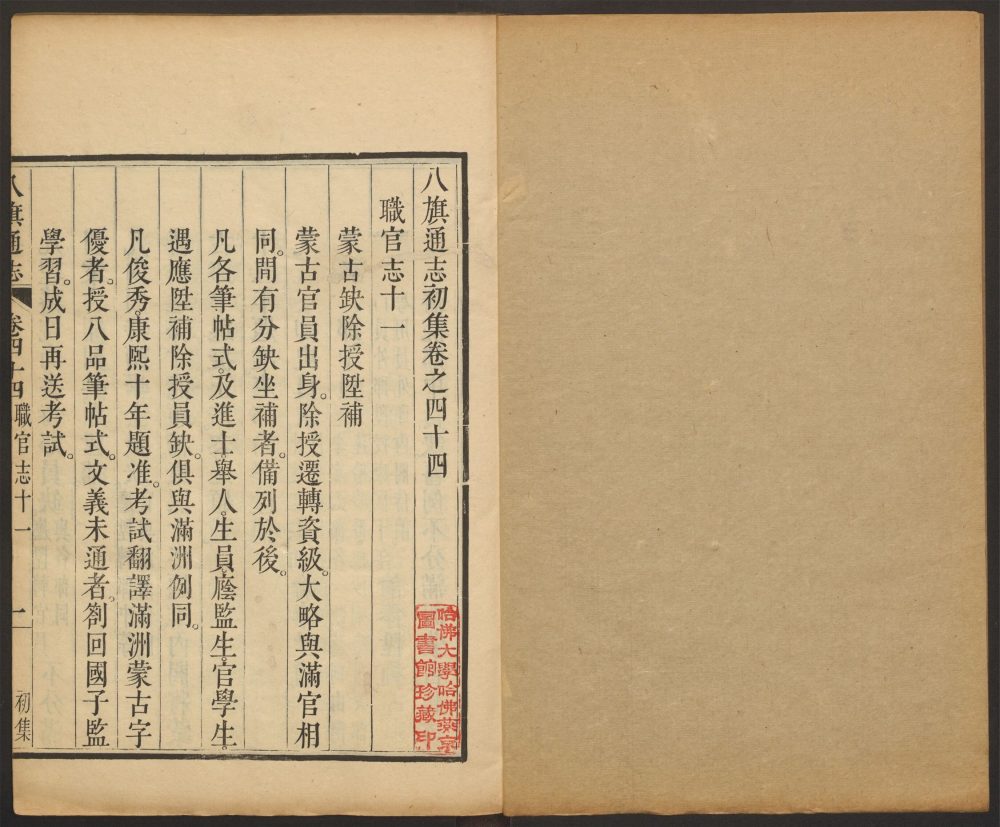 八旗通志初集卷之四十四
職官志十一
蒙古缺除授陞補
蒙古官員出身。除授遷轉資級。大略與滿官相
同。間有分缺坐補者。備列於後。
凡各筆帖式。及進士。舉人。生員。廕監生。官學生。
遇應陞補除授員缺。俱與滿洲例同。
凡俊秀。康熙十年題准。考試翻譯滿洲蒙古字
優者。授八品筆帖式。文義未通者。劄回國子監
學習。成日再送考試。
八旗通志 卷四十四 職官志十一 一 初集
哈佛大學哈佛燕京
圖書館珍藏印